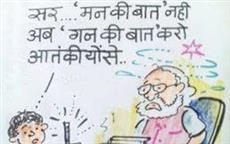 सर....‘मन की बात’ नही
अब ‘गन की बात’ करो
आतंकीयोंसे..